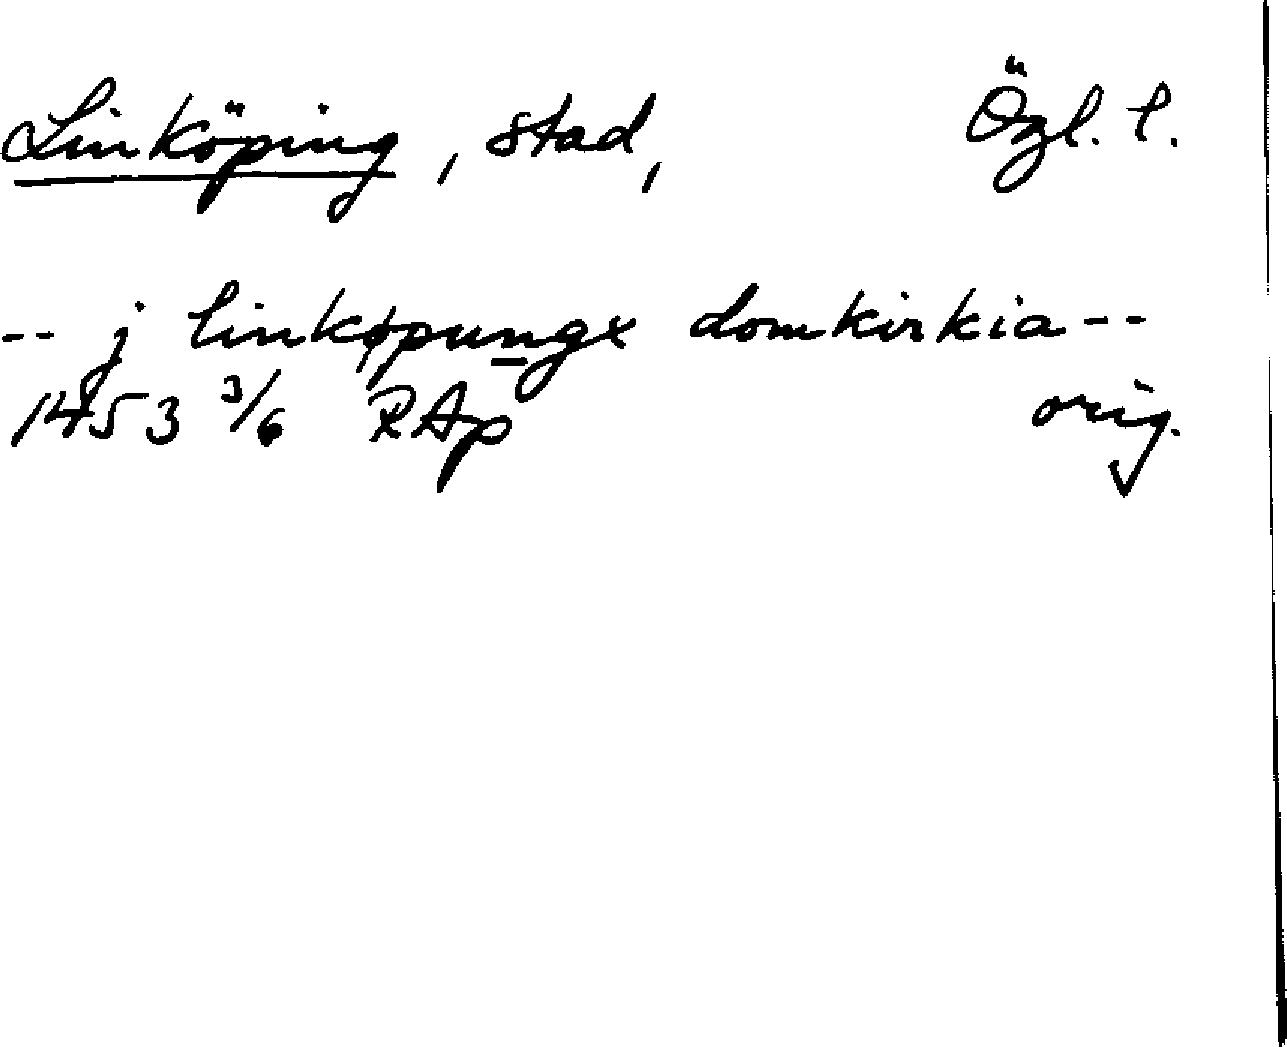 Linköping, stad, Ögl. l.
-- j linkøpungx domkirkia --
1453 3/6 RAp orig.